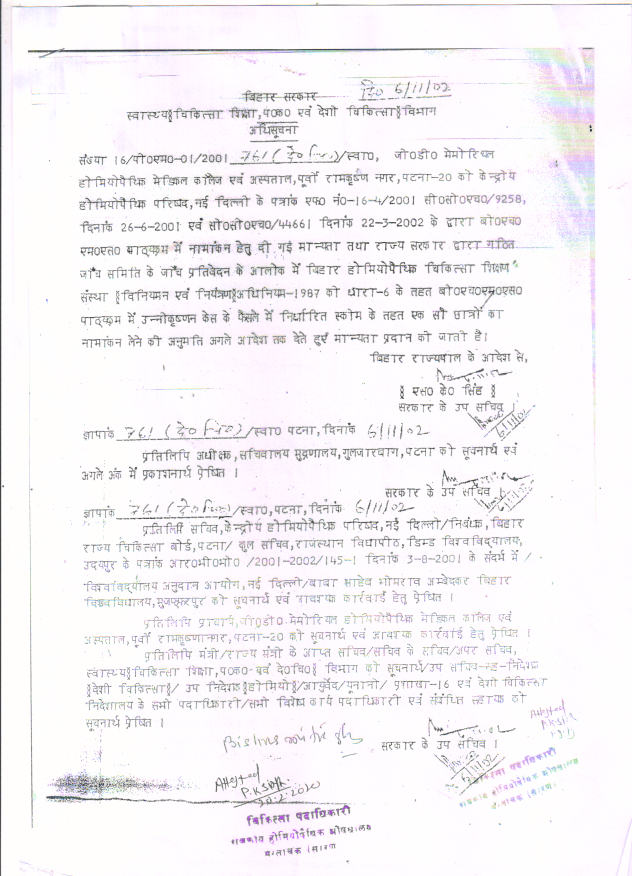 बिहार सरकार दि0 6/11/02
स्वास्थ्य§चिकित्सा शिक्षा,प0क0 एवं देशी चिकित्सा§विभाग
अधिसूचना
संख्या 16/पी0एम0-01/2001 761(दे0चि0)/स्वा0, जी0डी0 मेमोरियल
होमियोपैथिक मेडिकल कालेज एवं अस्पताल,पूर्वी रामकृष्ण नगर,पटना-20 को केन्द्रीय
होमियोपैथिक परिषद,नई दिल्ली के पत्रांक एफ0 नं0-16-4/2001 सी0सी0एच0/9258,
दिनांक 26-6-2001 एवं सी0सी0एच0/44661 दिनांक 22-3-2002 के द्वारा बी0एच0
एम0एस0 पाठ्यक्रम में नामांकन हेतु दी गई मान्यता तथा राज्य सरकार द्वारा गठित
जाँच समिति के जाँच प्रतिवेदन के आलोक में बिहार होमियोपैथिक चिकित्सा शिक्षण
संस्था §विनियमन एवं नियंत्रण§अधिनियम-1987 की धारा-6 के तहत बी0एच0एम0एस0
पाठ्यक्रम में उन्नीकृष्णन केस के फैसले में निर्धारित स्कीम के तहत एक सौ छात्रों का
नामांकन लेने की अनुमति अगले आदेश तक देते हुए मान्यता प्रदान की जाती है।
बिहार राज्यपाल के आदेश से,
§ एस0 के0 सिंह §
सरकार के उप सचिव ।
6/11/02
ज्ञापांक 761(दे0चि0)/स्वा0 पटना,दिनांक 6/11/02
प्रतिलिपि अधीक्षक,सचिवालय मुद्रणालय,गुलजारबाग,पटना को सूचनार्थ एवं
अगले अंक में प्रकाशनार्थ प्रेषित ।
सरकार के उप सचिव
6/11/02
ज्ञापांक 761(दे0चि0)/स्वा0,पटना,दिनांक 6/11/02
प्रतिलिपि सचिव,केन्द्रीय होमियोपैथिक परिषद,नई दिल्ली/निबंधक,बिहार
राज्य चिकित्सा बोर्ड,पटना/ कुल सचिव,राजस्थान विद्यापीठ,डिम्ड विश्वविद्यालय,
उदयपुर के पत्रांक आर0भी0भी0 /2001-2002/145-1 दिनांक 3-8-2001 के संदर्भ में /
विश्वविद्यालय अनुदान आयोग,नई दिल्ली/बाबा साहेब भीमराव अम्बेदकर बिहार
विश्वविद्यालय,मुजफ्फरपुर को सूचनार्थ एवं आवश्यक कार्रवाई हेतु प्रेषित ।
प्रतिलिपि प्राचार्य,जी0डी0 मेमोरियल होमियोपैथिक मेडिकल कालेज एवं
अस्पताल,पूर्वी रामकृष्णनगर,पटना-20 को सूचनार्थ एवं आवश्यक कार्रवाई हेतु प्रेषित ।
प्रतिलिपि मंत्री/राज्य मंत्री के आप्त सचिव/सचिव के सचिव/अपर सचिव,
स्वास्थ्य§चिकित्सा शिक्षा,प0क0 एवं दे0चि0§ विभाग को सूचनार्थ/उप सचिव-सह-निदेशक
§देशी चिकित्सा§/ उप निदेशक§होमियो§/आयुर्वेद/यूनानी/ प्रशाखा-16 एवं देशी चिकित्सा
निदेशालय के सभी पदाधिकारी/सभी विशेष कार्य पदाधिकारी एवं संबंधित सहायक को
सूचनार्थ प्रेषित ।
सरकार के उप सचिव ।
6/11/02
Attested
Attested
20.2.2020
चिकित्सा पदाधिकारी
राजकीय होमियोपैथिक औषधालय
चिकित्सा पदाधिकारी
राजकीय होमियोपैथिक औषधालय